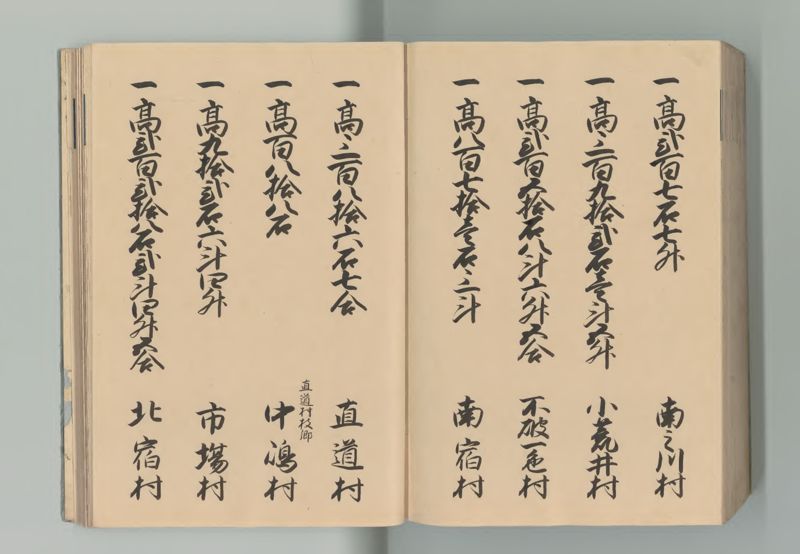 一高弐百七石七升 南之川村
一高三百九拾弐石壱斗五升 小荒井村
一高弐百五拾石八斗六升五合 不破一色村
一高八百七拾壱石三斗 南宿村
一高三百八拾六石七合 直道村
直道村枝郷
一高百八拾八石 中嶋村
一高九拾弐石六斗四升 市場村
一高弐百弐拾八石弐斗四升五合 北宿村